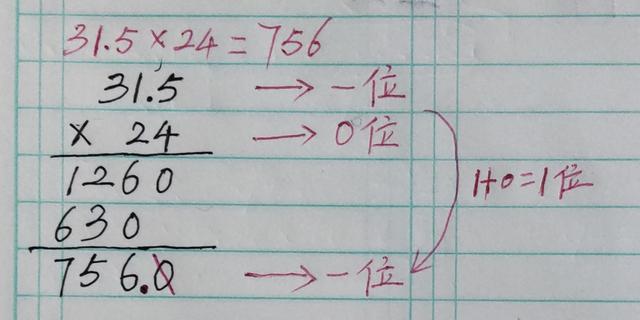 31.5×24=756
31.5 → 一位
× 24 → 0位
1260
1+0=1位
630
756.0 → 一位